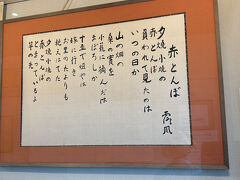 赤とんぼ
露風
夕焼小焼の
赤とんぼ
負われて見たのは
いつの日か
山の畑の
桑の実を
小籠に摘んだは
まぼろしか
十五で姐やは
嫁に行き
お里のたよりも
絶えはてた
夕焼小焼の
赤とんぼ
とまっているよ
竿の先